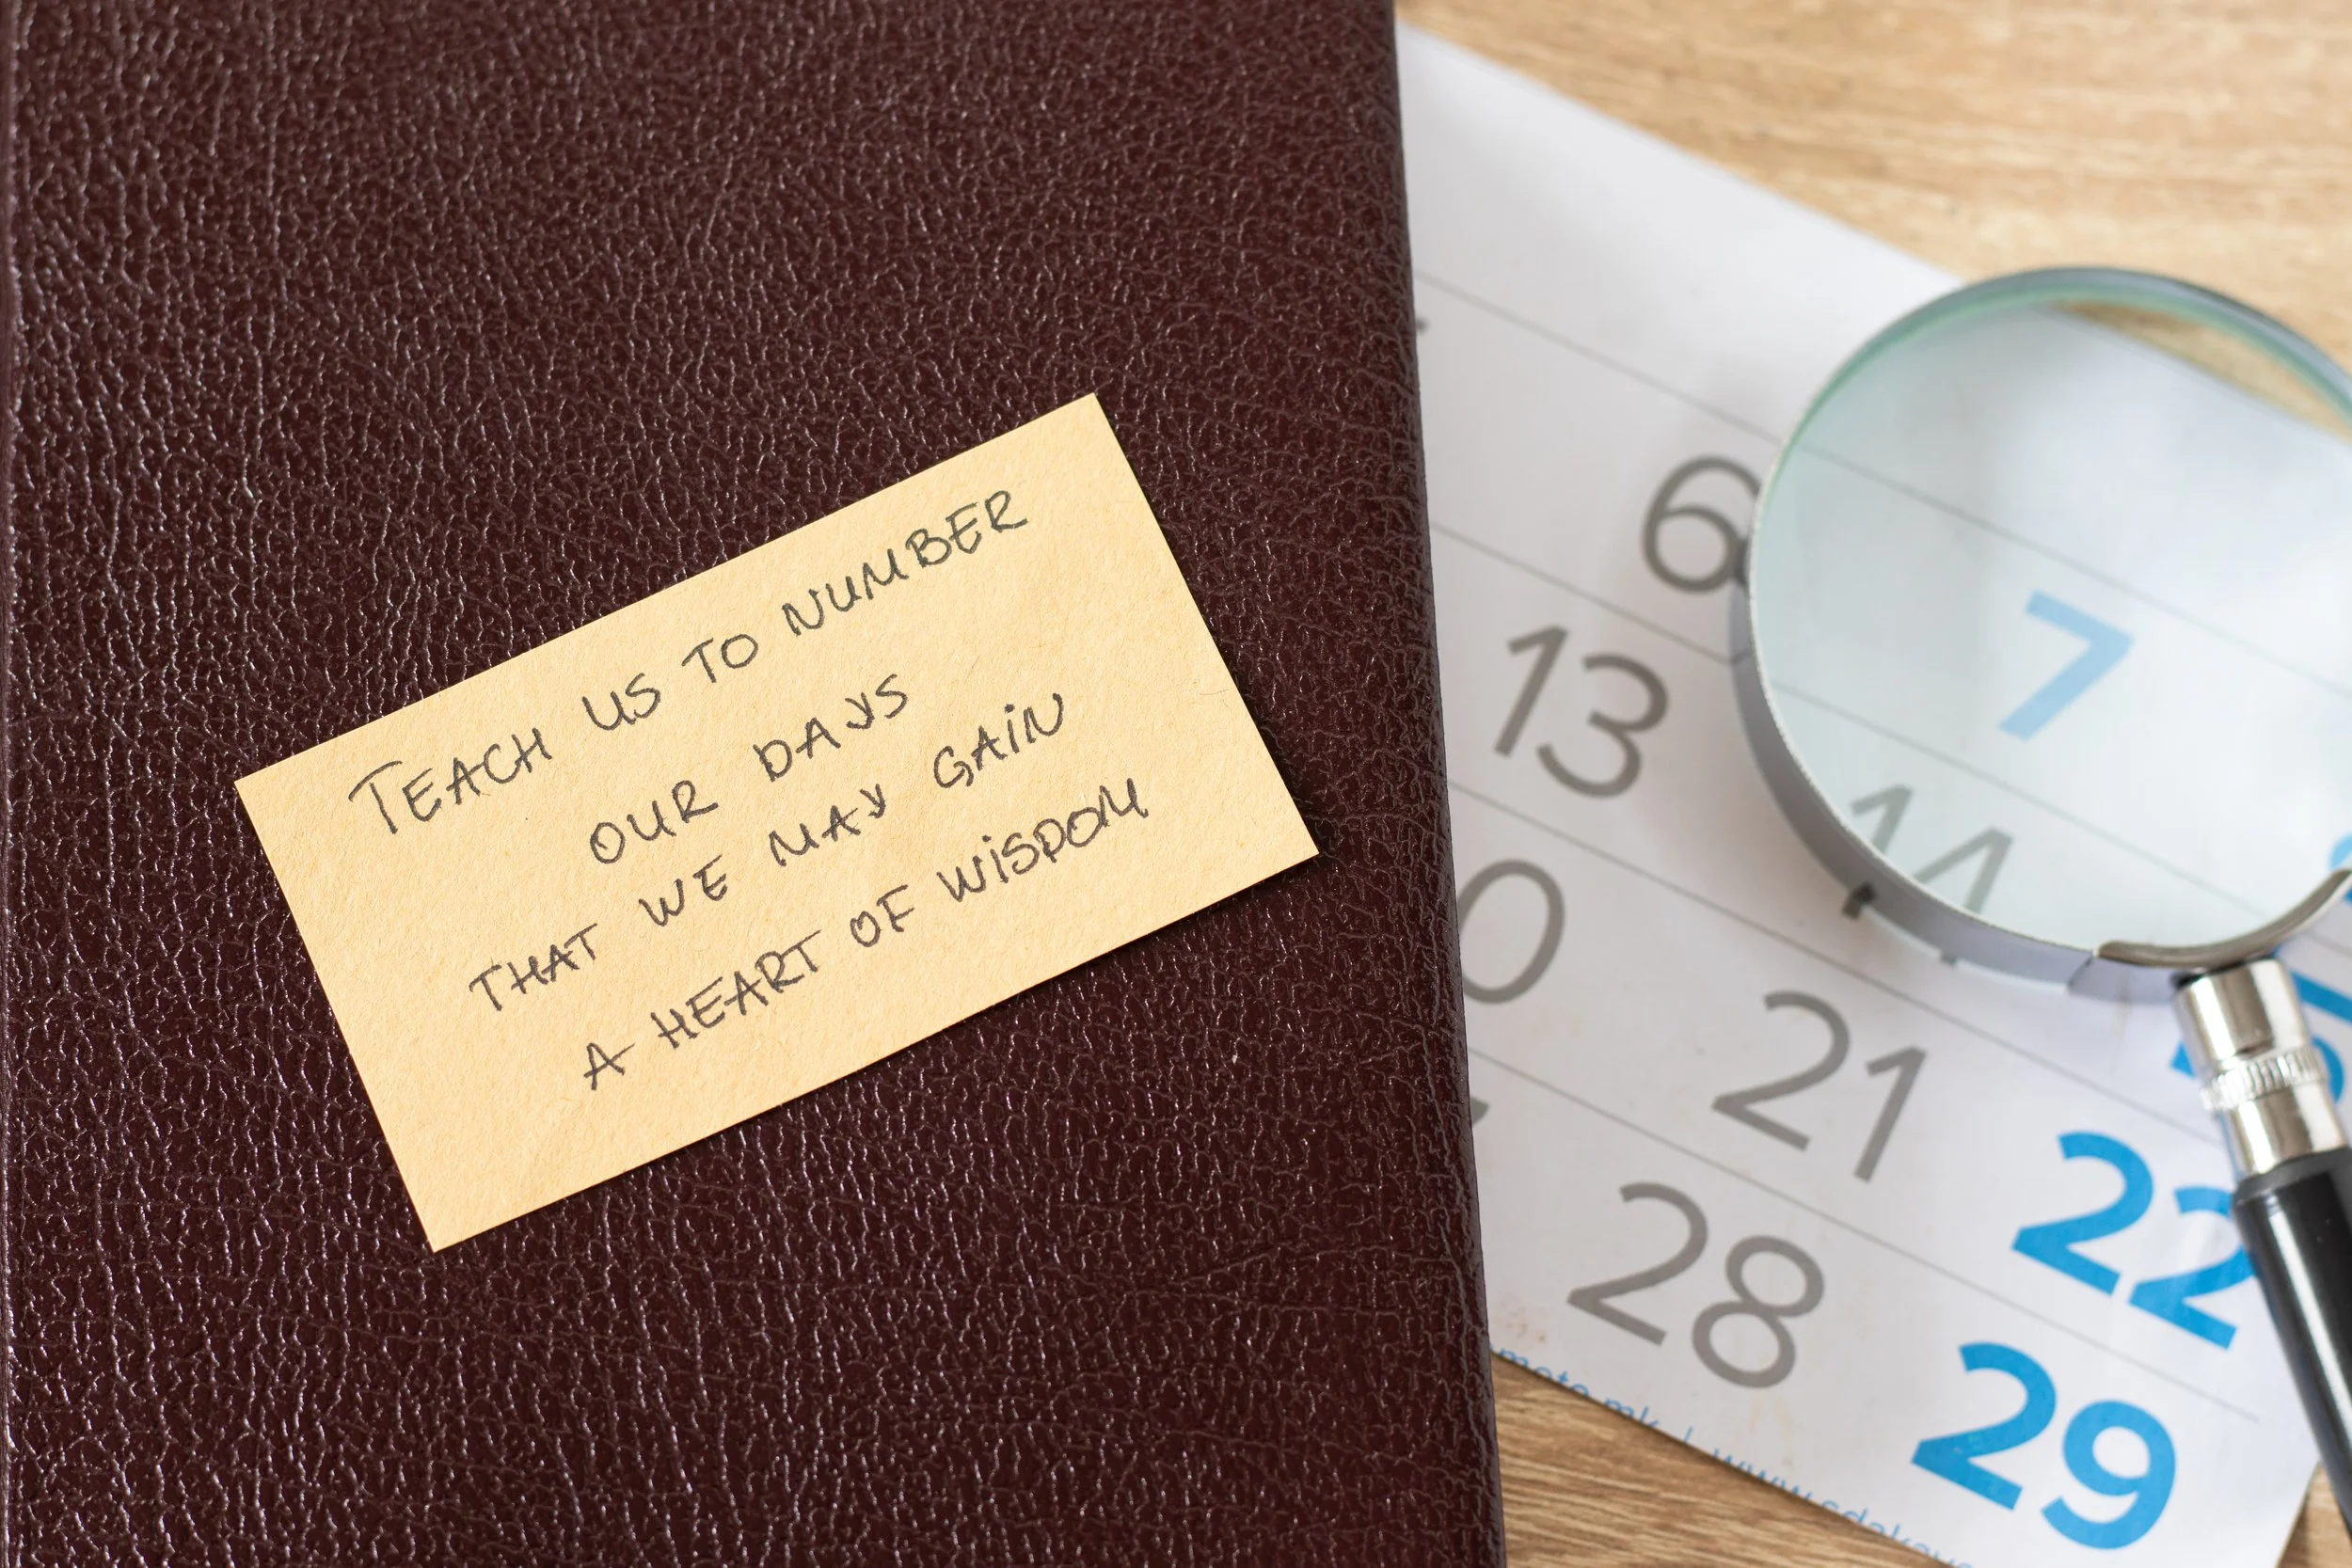 TEACH US TO NUMBER
OUR DAYS
THAT WE MAY GAIN
A HEART OF WISDOM
6 7
13 14
21 22
28 29